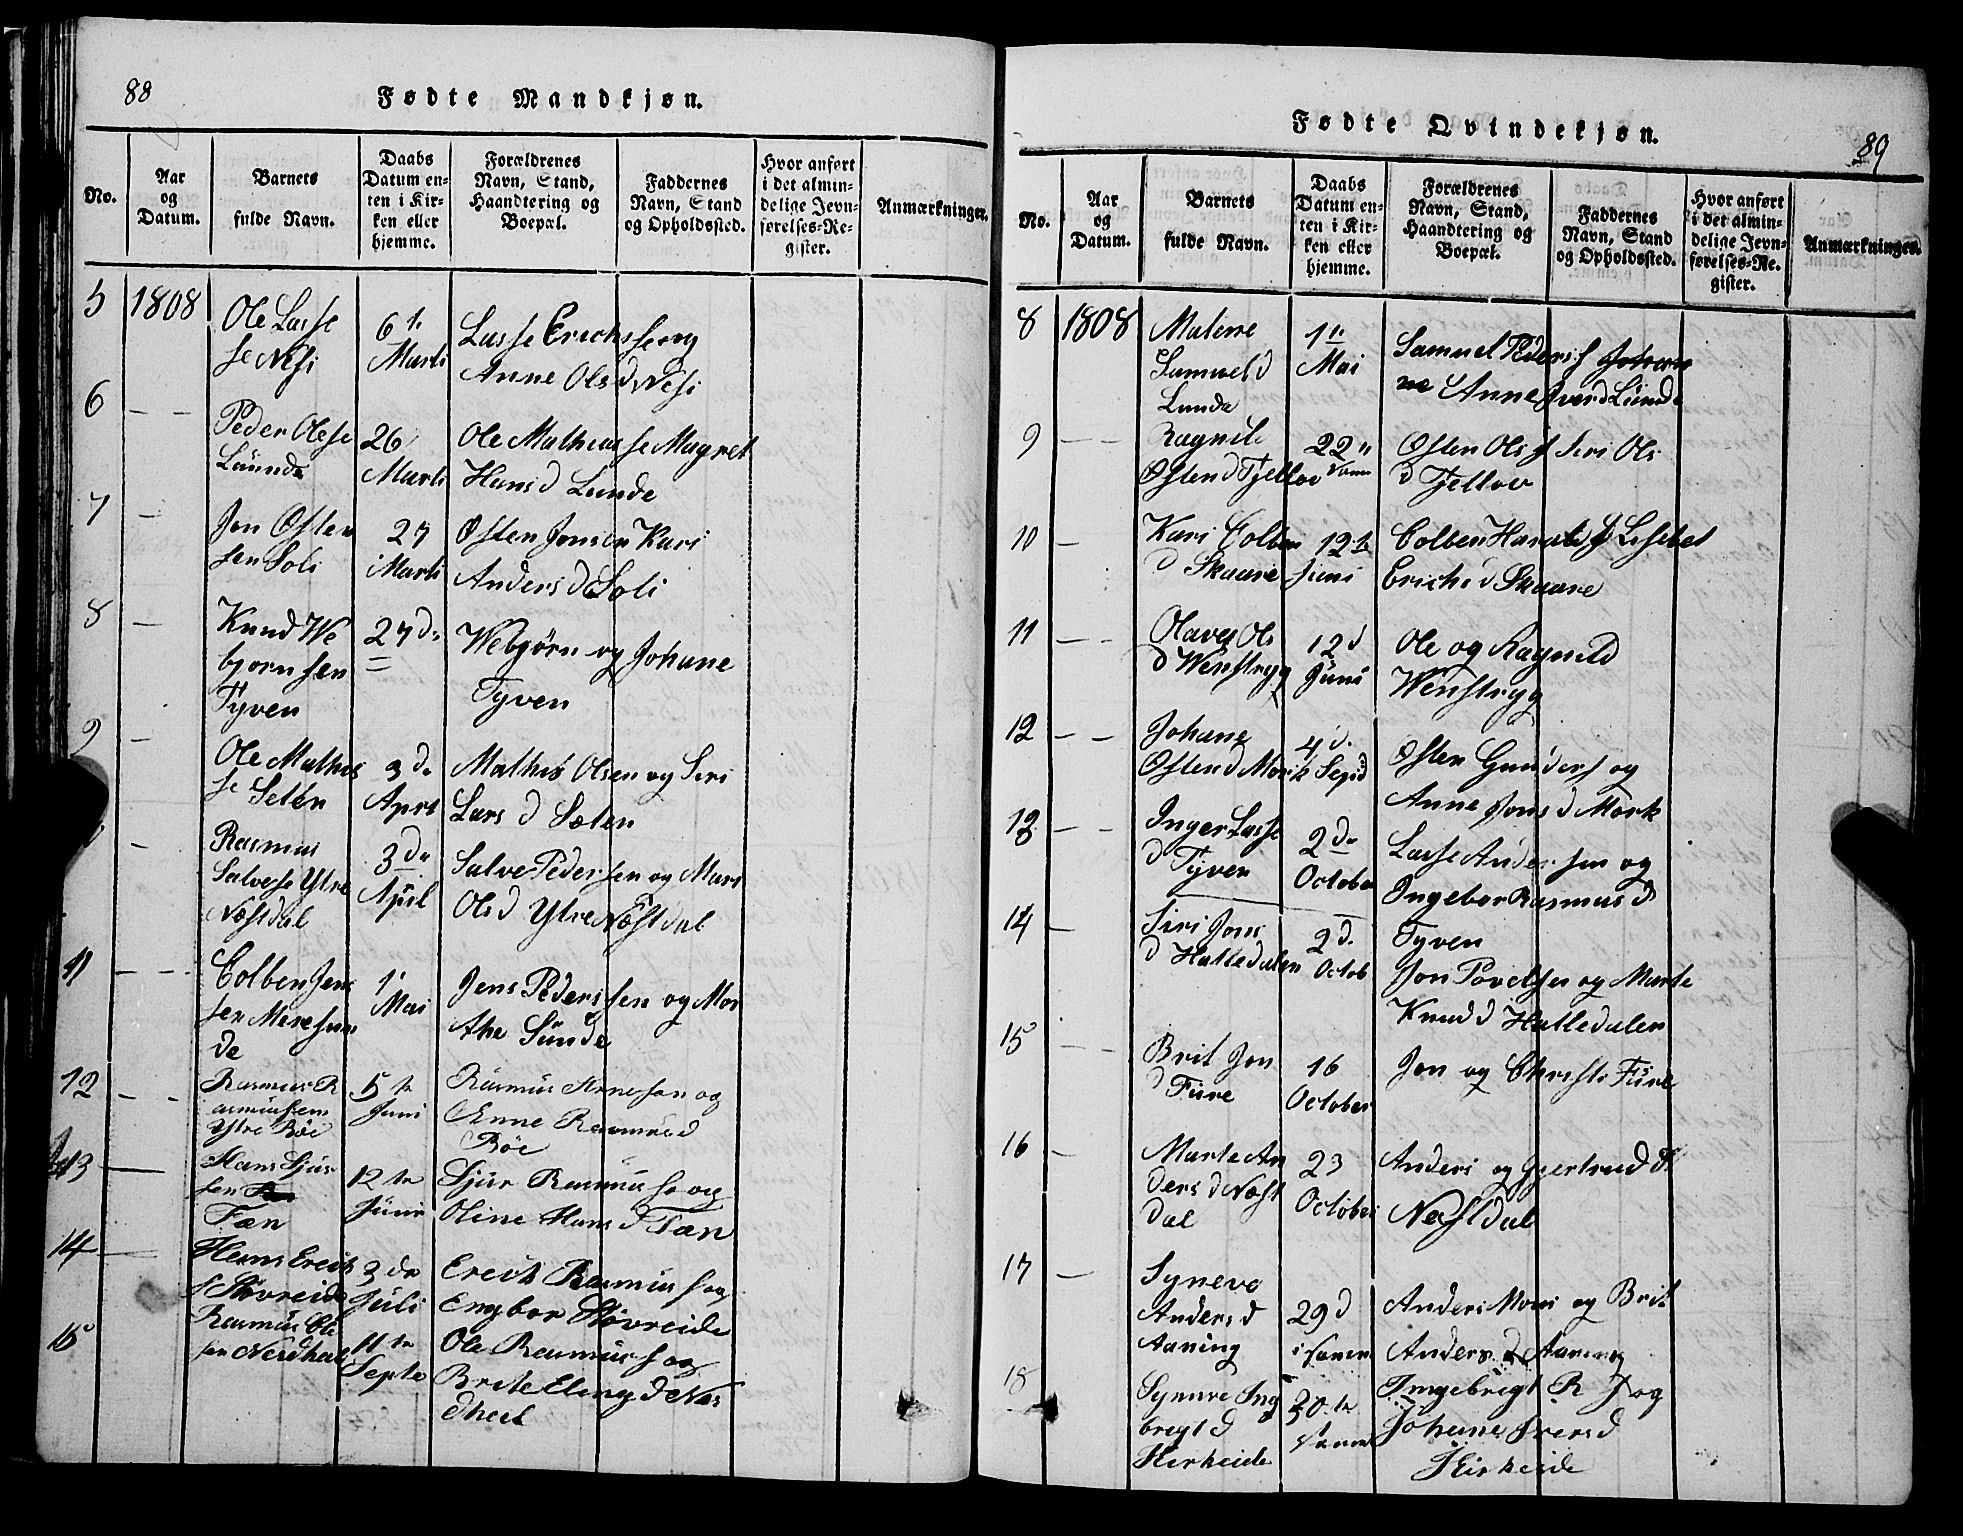 88
Fødte Mandkjøn.
No.
Aar
og
Datum.
Barnets
fulde Navn.
Daabs
Datum en-
ten i Kir-
ken eller
hjemme.
Forældrenes
Navn, Stand,
Haandtering og
Boepæl.
Faddernes
Navn, Stand
og Opholdssted.
Hvor anført
i det almin-
delige Jevn-
førelses-Re-
gister.
Anmærkninger.
5
1808
Ole Lasse
se Nesi
6
Marti
Lasse Erichsse og
Anne Olsd Nesi
6
Peder Olese
Lunnde
26
Marti
Ole Mathias se Magret
Hans d Lunde
7
Jon Østen
sen Soli
27
Marti
Østen Jonsen Kari
Anders d Soli
8
Knud We
bjornsen
Tyven
27 d
Webjørn og Johane
Tyven
9
Ole Mathis
se Seten
3 d
Apri
Mathis Olsen og Seri
Lars d Sæten
Rasmus
Salvese Ytre
Næstdal
3 d
April
Salve Pedersen og Mari
Ols d Ytre Næstdal
11
Colben Jens
sen Meresun
de
1
Mai
Jens Pederssen og Mar
the Sunde
12
Rasmus R
asmussen
Ytre Bøe
5 te
Juni
Rasmus Arnesen og
Anne Rasmus d
Bøe
13
Hans Sjur
sen
Tæn
12 te
Junii
Sjur Rasmus s og
Oline Hans d Tæn
14
Hans Erich
s Støvreide
3 de
Juli
Erich Rasmus s og
Engbor Støvreide
15
Rasmus Ole
sen Nerdhal
11 te
Septe
Ole Rasmus s og
Brite Eling d Ner
dheel
89
Fødte Qvindekjøn.
No.
Aar
og
Datum.
Barnets
fulde Navn.
Daabs
Datum en-
ten i Kir-
ken eller
hjemme.
Forældrenes
Navn, Stand,
Haandtering og
Boepæl.
Faddernes
Navn, Stand
og Opholdssted.
Hvor anført
i det almin-
delige Jevn-
førelses-Re-
gister.
Anmærkninger.
8
1808
Malene
Samuels d
Lunde
1
Mai
Samuel Peders s
Anne Iver d Lunde
9
Ragnil
Østen d Tjellov
22
Østen Ols s Seri Ols
d Tjellov
10
Kari Colben
d Skaare
12 te
Juni
Colben Haralds s Lisebet
Erichs d Skaare
11
Olave Ols
d Wenstryg
12 d
Juni
Ole og Ragneld
Wenstryg
12
Johane
Østen d Mork
4 d.
Østen Gunders og
Anne Jons d Mork
13
Inger Lasse
d Tyven
2 d
October
Lasse Andersen og
Ingebor Rasmus d
Tyven
14
Siri Jons
d Hatledalen
2 d.
Octob
Jon Povelsen og Marte
Knud d Hatledalen
15
Brit Jon
d Fure
16
October
Jon og Christi Fure
16
Marte An
ders d Næst
dal
23
October
Anders og Gjertrud
Nestdal
17
Syneve
Anders d
Aaning
29 d
Anders Mons og Brit
Anders d Aaning
18
Synnve Ing
bregt d
Hierheide
30 te
Imgebregt R s og
Johane Ivers d
Hierheide